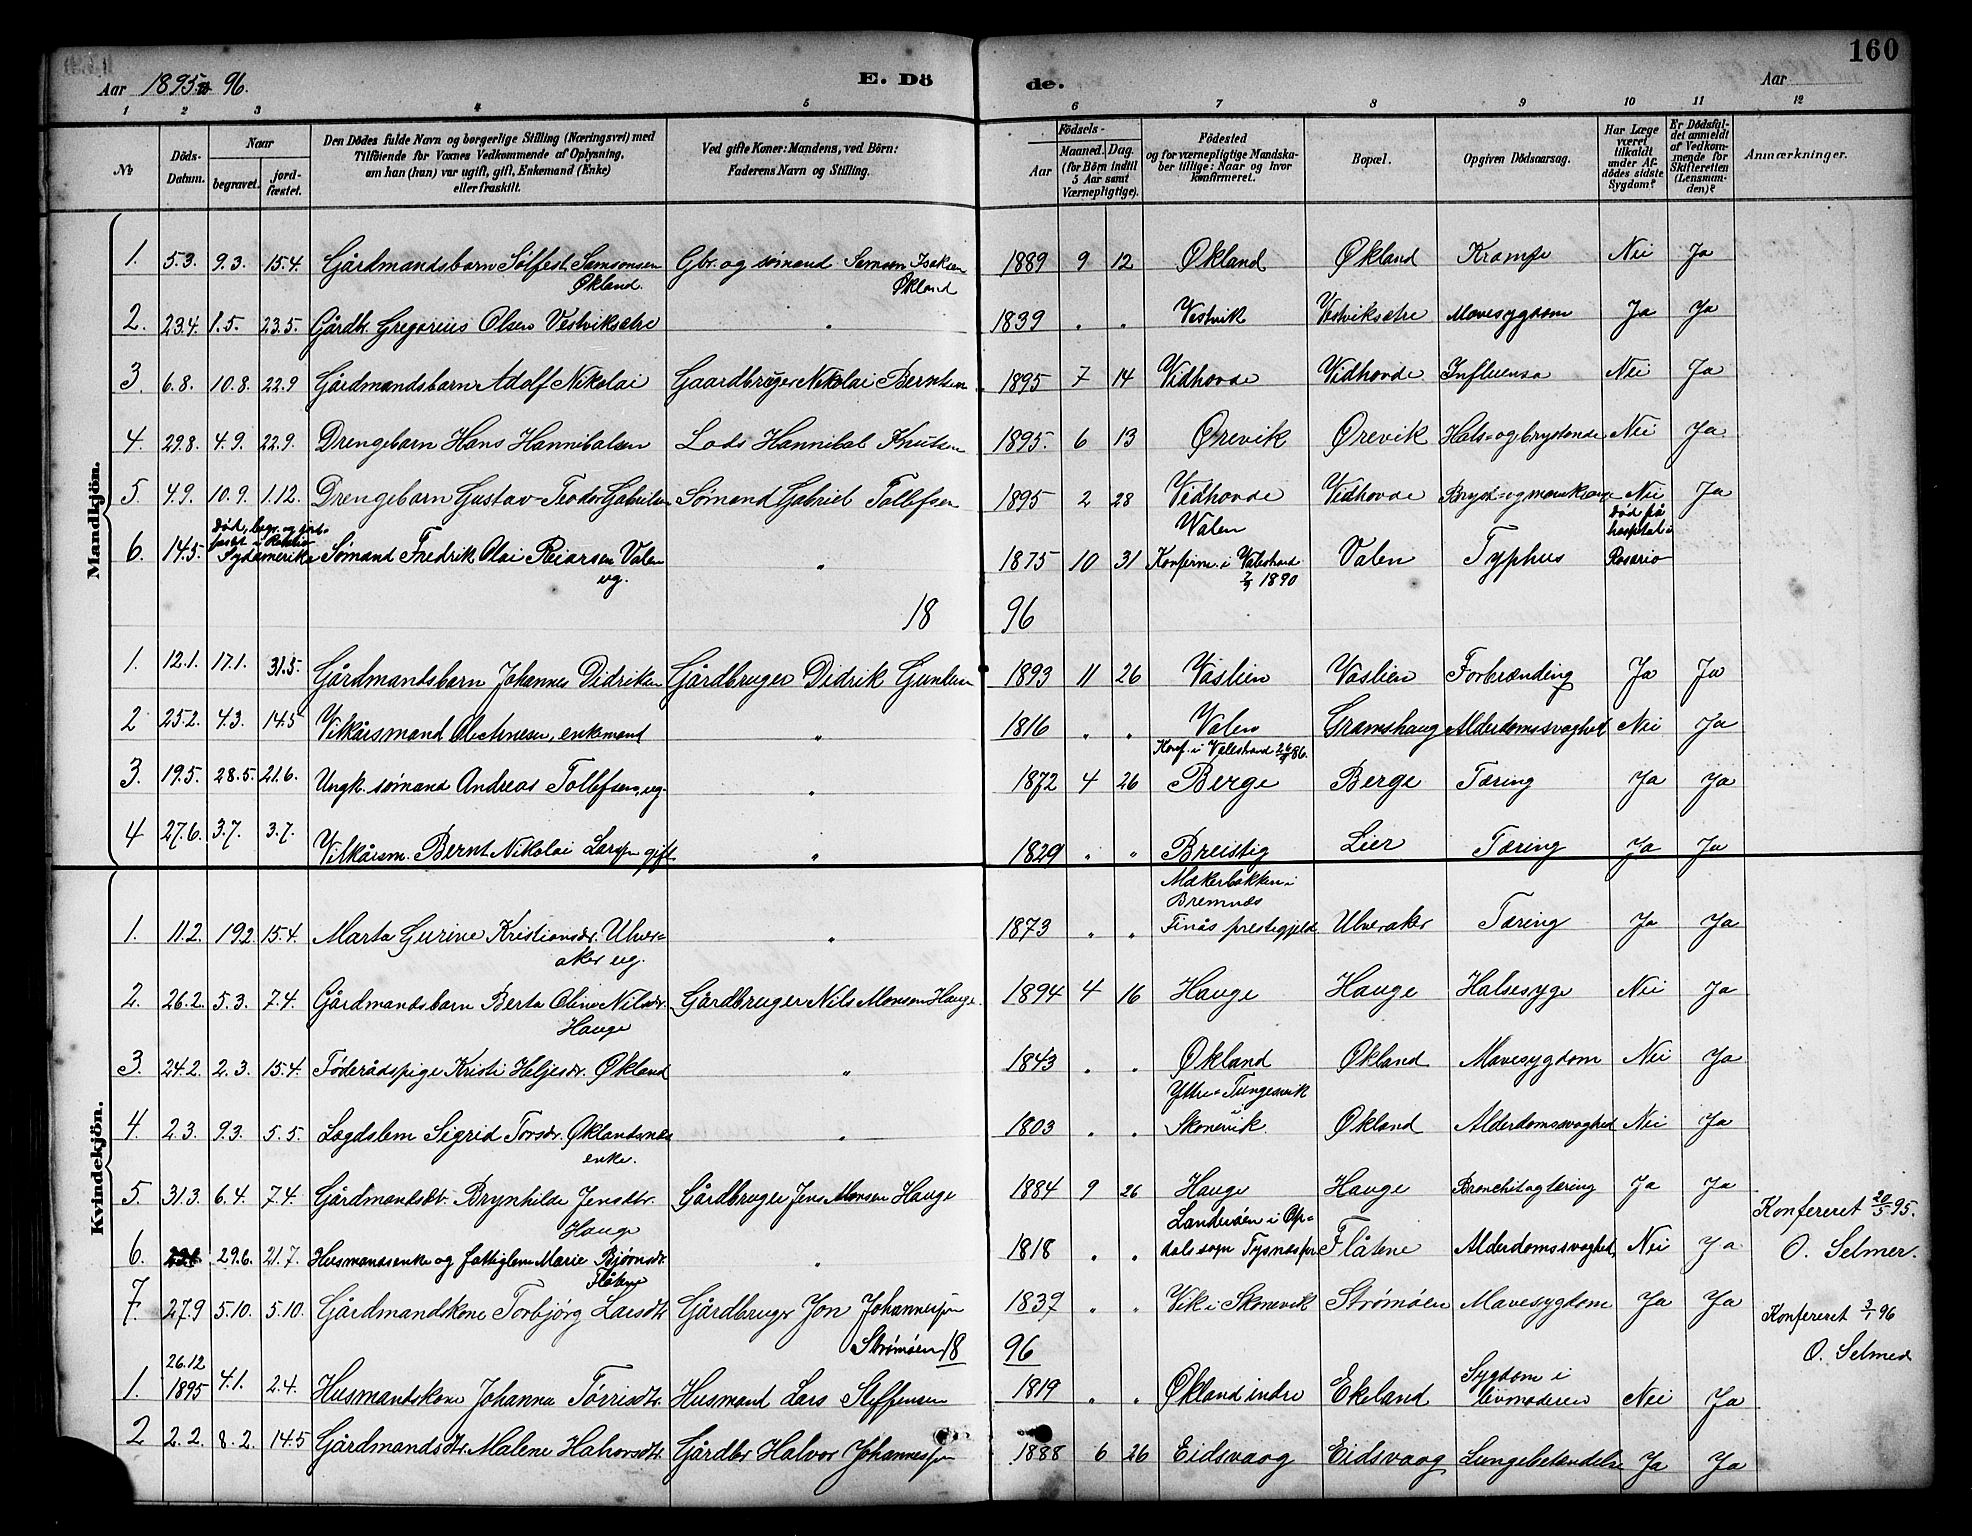 160
Aar 1895 96. E. Dö de. Aar
1 2 3 4 5 6 7 8 9 10 11 12
№ Döds-Datum. Naar begravet. jordfæstet. Den Dödes fulde Navn og borgerlige Stilling (Næringsvei) med Tilföiende for Voxnes Vedkommende af Oplysning, om han (hun) var ugift, gift, Enkemand (Enke) eller fraskilt. Ved gifte Koner: Mandens, ved Börn: Faderens Navn og Stilling. Födsels- Aar Maaned. Dag. (for Börn indtil 5 Aar samt Værnepligtige). Födested og for værnepligtige Mandskaber tillige: Naar og hvor konfirmeret. Bopæl. Opgiven Dödsaarsag. Har Læge været tilkaldt under Afdödes sidste Sygdom? Er Dödsfaldet anmeldt af Vedkommende for Skifteretten (Lensmanden)? Anmærkninger.
Mandkjön.
1. 5.3. 9.3. 15.4. Gårdmandsbarn Sølfest Samsonsen Økland. Gbr. og sømand Samson Isaksen Økland 1889 9 12 Økland Økland Krampe Nei Ja
2. 23.4. 1.5. 23.5. Gårdbr. Gregorius Olsen Vestviksætre " 1839 " " Vestvik Vestviksætre Mavesygdom Ja Ja
3. 6.8. 10.8. 22.9 Gårdmandsbarn Adolf Nikolai Gaardbruger Nikolai Berntsen 1895 7 14 Vidhovde Vidhovde Influensa Nei Ja
4. 29.8. 4.9. 22.9. Drengebarn Hans Hannibalsen Lods Hannibal Knutsen 1895. 6 13 Ørevik Ørevik Hals- og brystonde Nei Ja
5 4.9. 10.9. 1.12. Drengebarn Gustav Teodor Gabrielsen Sømand Gabriel Tollefsen 1895 2 28 Vidhovde Vidhovde Bryst- og Nei Ja
6. 14.5. død, begr. og jordfæstet i Sydamerika Sømand Fredrik Olai Reiarsen Valen ug. " 1875 10 31 Valen Konfirm. i Valestrand 1890 Valen Typhus død på hospital i Rosario
18 96
1. 12.1. 17.1. 31.5. Gårdmandsbarn Johannes Didriksen Gårdbruger Didrik Guntsen 1893 11 26 Våslien Vaslien Forbrænding Ja Ja
2 25.2. 4.3. 14.5 Vilkårsmand Ole Arnesen, enkemand " 1816 " " Valen Gramshaug Alderdomssvaghet Nei Ja
3. 19.5. 28.5. 21.6. Ungk. sømand Andreas Tollefsen, ug. " 1872 4 26 Konf. i Valestrand 86. Berge Berge Tæring Ja Ja
4 27.6. 3.7. 3.7. Vilkårsm. Bernt Nikolai Larssen gift " 1829 " " Breistig Lier Tæring Ja Ja
Kvindekjön.
1. 11.2. 19.2. 15.4. Marta Gurine Kristiansdr. Ulveraker ug. " 1873 " " Mækerbakken i Bremnæs Finås prestegjeld Ulveraker Tæring Ja Ja
2. 26.2. 5.3. 7.4. Gårdmandsbarn Berta Oline Nilsdr. Hauge Gårdbruger Nils Monsen Hauge. 1894 4 16 Hauge Hauge Halsesyge Nei Ja
3. 24.2. 2.3. 15.4. Føderådspige Kristi Heljesdr. Økland " 1843 " " Økland Økland Mavesygdom Nei Ja
4. 2.3. 9.3. 5.5. Lægdslem Sigrid Torsdr. Øklandsnæs enke. " 1803 " " Ytre Tungesvik i Skonevik Økland Alderdomssvaghed Nei Ja
5. 31.3. 6.4. 7.4. Gårdmandsdtr. Brynhilde Jensdtr. Hauge Gårdbruger Jens Monsen Hauge 1884 9 26 Hauge Hauge Bronchit og tæring Ja Ja Konfereret 20/5 95. O. Selmer.
6. 29.6. 21.7. Husmandsenke og fattiglem Marie Bjørnsdr. Flåtene " 1818 " " Landersøen i Opdals sogn Tysnes pr. Flåtene Alderdomssvaghed Nei Ja
7. 27.9 5.10. 5.10. Gårdmandskone Torbjørg Larsdtr. Gårdbruger Jon Johannessen Strømøen 1837 " " Vik i Skonevik Strømøen Mavesygdom Ja Ja Konfereret 3/1 96 O. Selmer
18 96
1. 26.12 1895 4.1. 2.4. Husmandskone Johanna Tørrisdtr. Husmand Lars Steffensen 1819 " " Økland indre Ekeland Sygdom i livmoderen Nei Ja
2 2.2. 8.2. 14.5 Gårdmandsdtr. Malene Halvorsdtr. Gårdbr. Halvor Johannessen 1888 6 26 Eidsvaag Eidsvaag Lungebetændelse Ja Ja